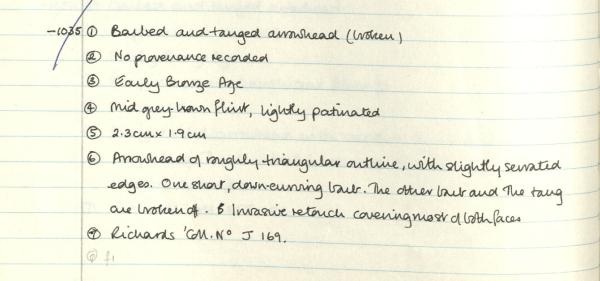 -1035 ① Barbed and tanged arrowhead (broken)
② No provenance recorded
③ Early Bronze Age
④ Mid grey-brown flint, lightly patinated
⑤ 2.3cm x 1.9cm
⑥ Arrowhead of roughly triangular outline, with slightly serrated
edges. One short, down-curving barb. The other barb and the tang
are broken off. Invasive retouch covering most of both faces
⑦ Richards' Coll. Nº J 169.